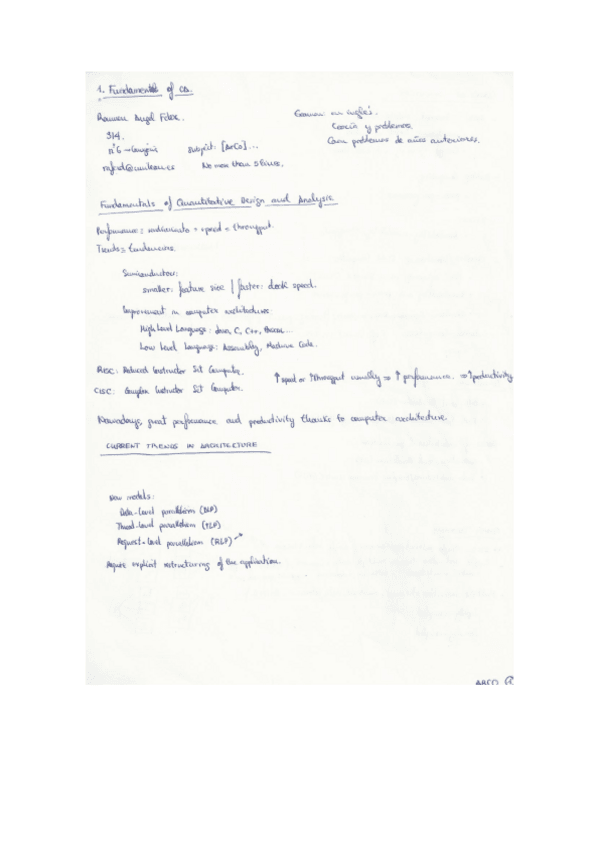 1. Fundamentals of CD.
Ramon Angel Fdez.
Examen: en inglés.
314.
Teoría y problemas.
nº6 → Conserje Subject: [ArCo]...
Con problemas de años anteriores.
No more than 5 lines.
Fundamentals of Quantitative Design and Analysis
Performance = rendimiento = speed = throughput.
Trends = tendencias.
Semiconductors:
smaller: feature size | faster: clock speed.
Improvement in computer architectures
High Level Language: Java, C, C++, Pascal...
Low Level Language: Assembly, Machine Code.
RISC: Reduced Instructor Set Computer.
↑ speed or ↑ throughput usually ⇒ ↑ performance. ⇒ ↑ productivity
CISC: Complex Instructor Set Computer.
Nowadays, great performance and productivity thanks to computer architecture.
CURRENT TRENDS IN ARCHITECTURE
New models:
Data-Level parallelism (DLP)
Thread-Level parallelism (TLP)
Request-Level parallelism (RLP)
Require explicit restructuring of the application.
ARCO